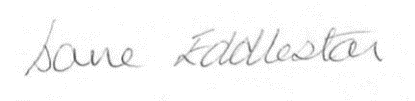 Jane Eddleston